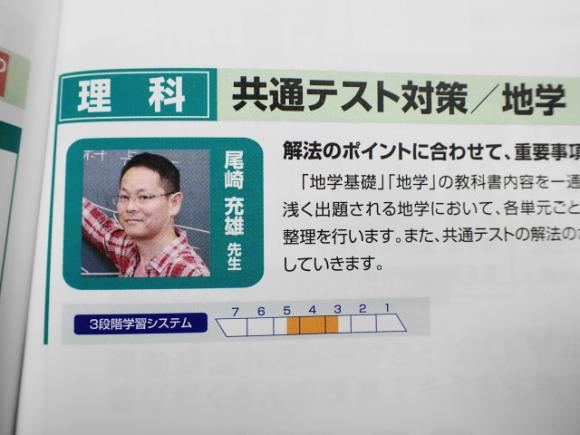 理科
共通テスト対策／地学
尾崎 充雄 先生
解法のポイントに合わせて、重要事項
「地学基礎」「地学」の教科書内容を一通
浅く出題される地学において、各単元ごと
整理を行います。また、共通テストの解法の
していきます。
3段階学習システム
7 6 5 4 3 2 1